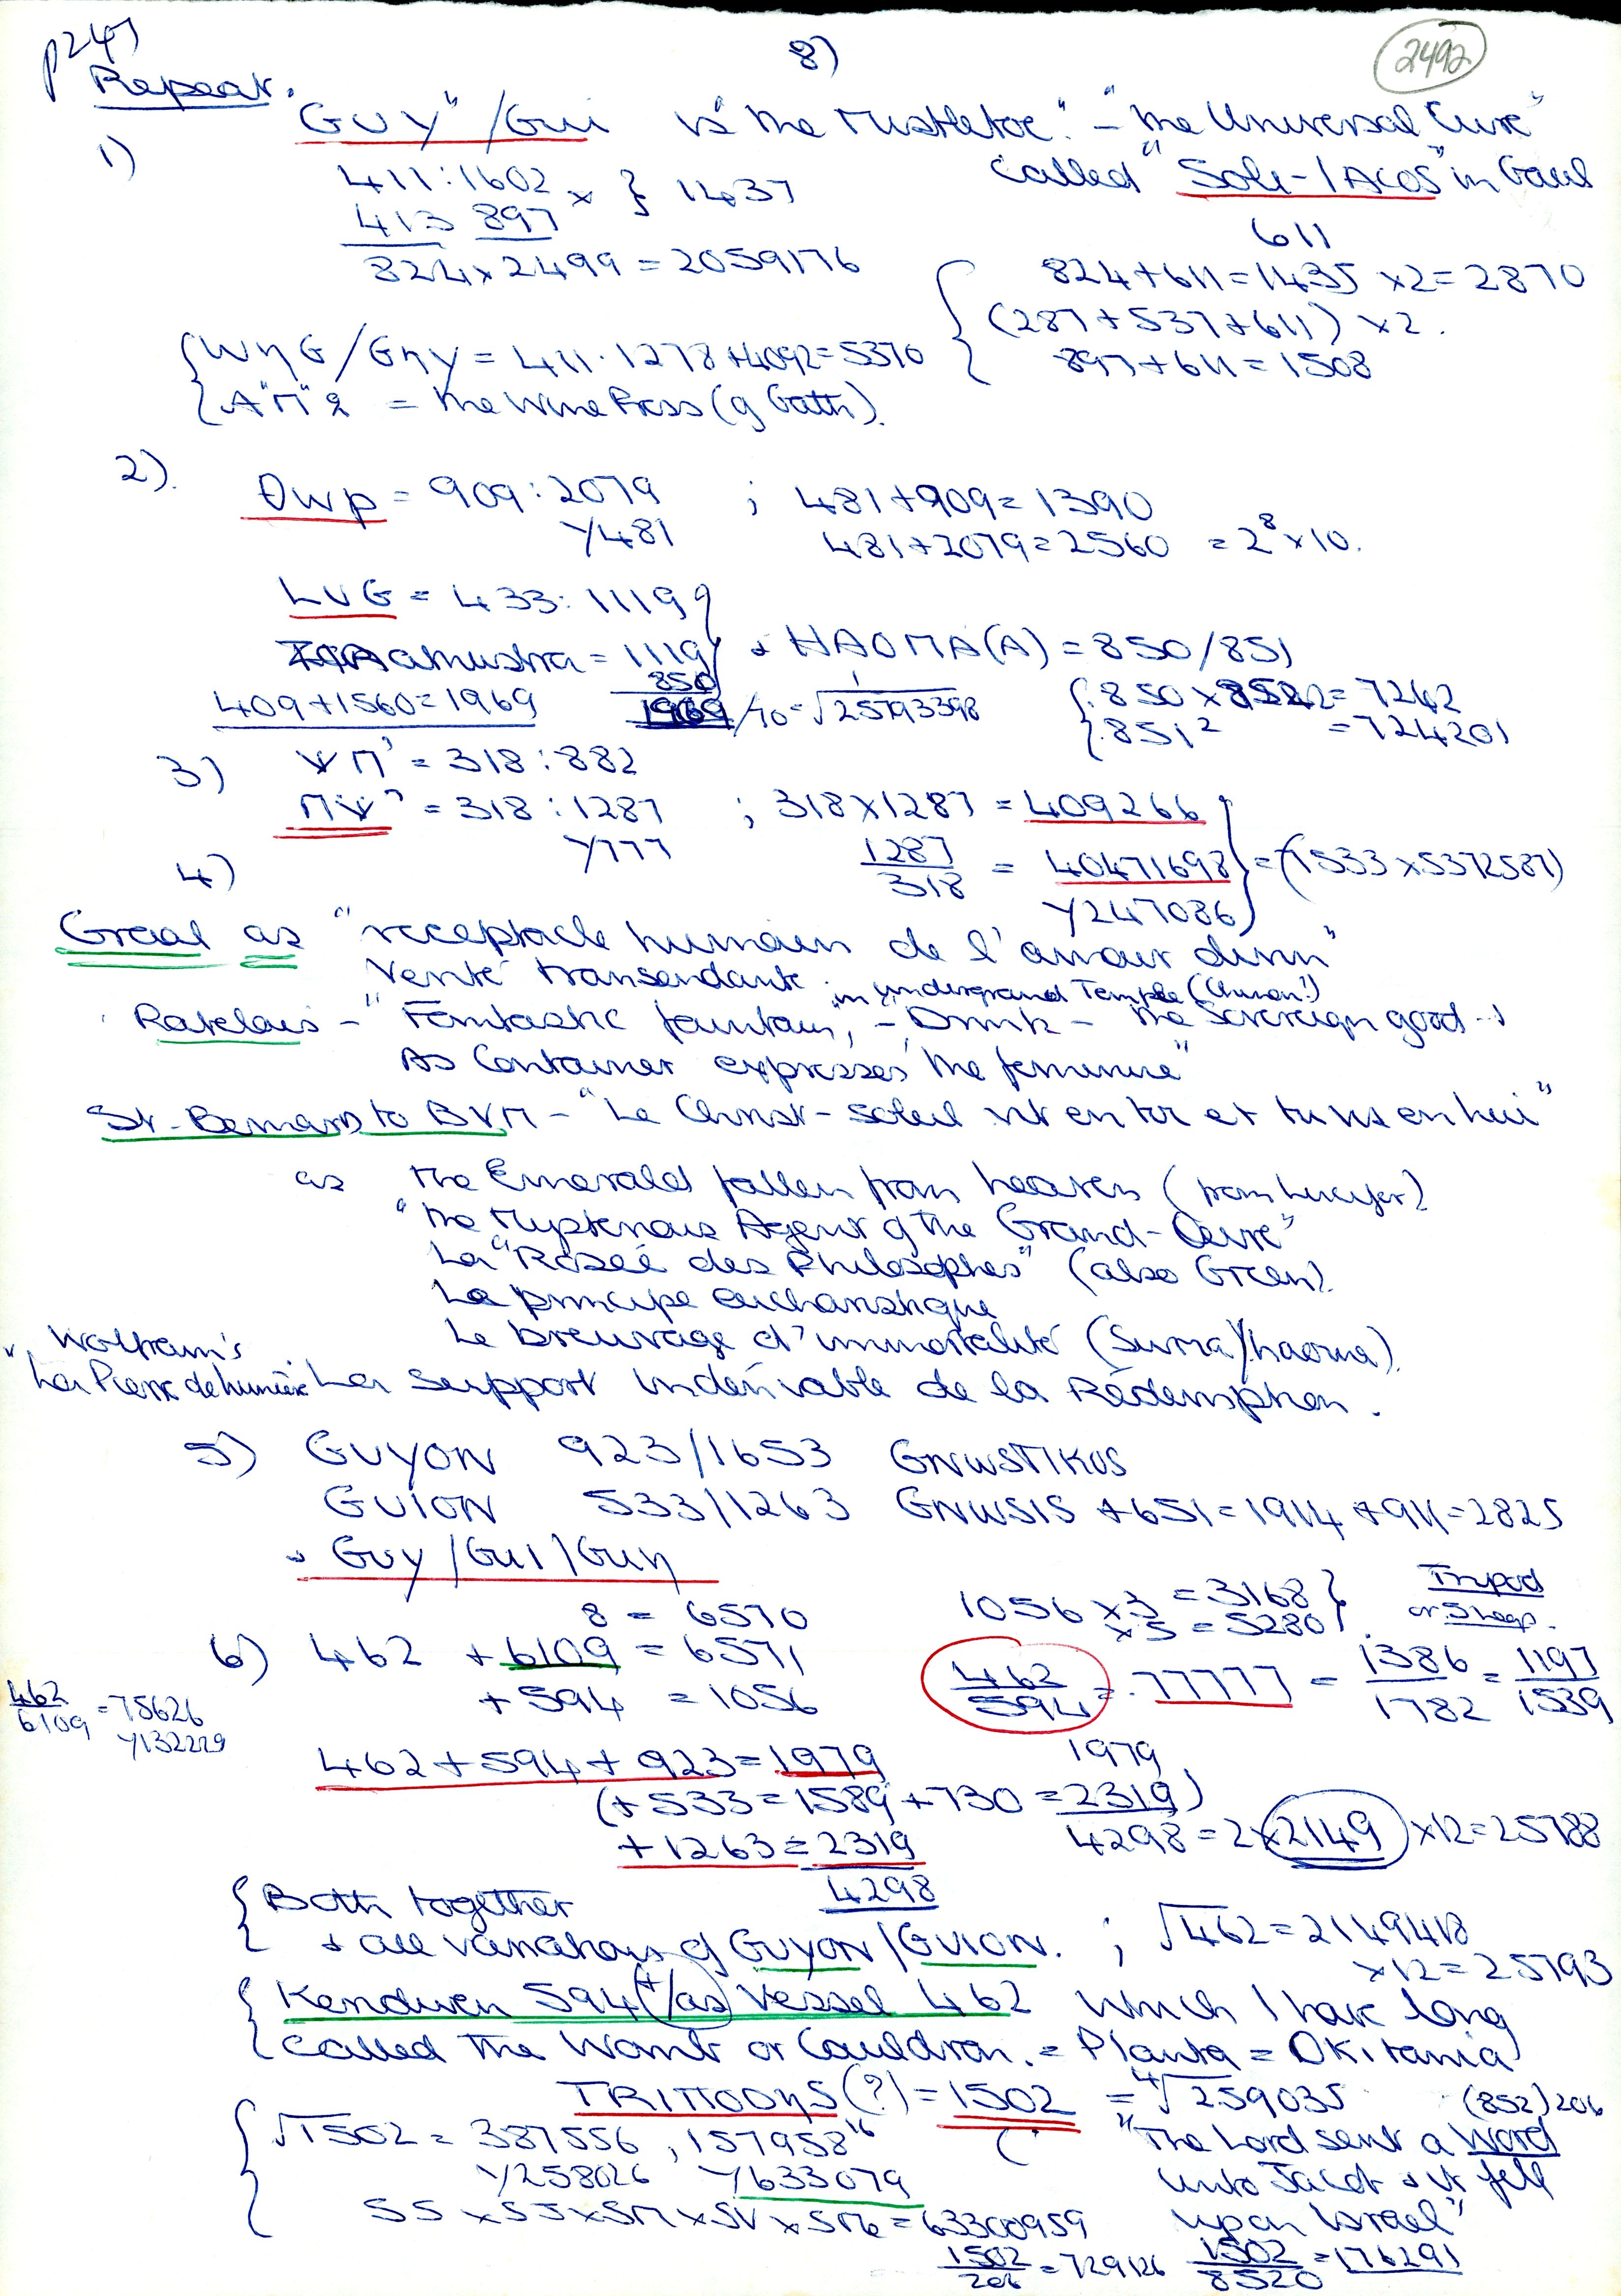 p247
8)
2492
Repeat.
"GUY"/Gui is "the Mistletoe." - "the Universal Cure"
1)
called "Soli-IACOS" in Gaul
411:1602 x } 1437
611
413 897
824x2499 = 2059176
824+611=1435 x2=2870
(287+537+611) x2.
897+611=1508
WηG/Gηγ = 411.1278+4092=5370
= the Wine Press (of Gath).
2).
θwp = 909:2079 ; 481+909=1390
γ481 481+2079=2560 = 2⁸x10.
LUG = 433:1119
amustra = 1119 + HAOMA(A) = 850/851
850
409+1560=1969 1969/70=√25793398
850x8522=7242
851² =724201
3) ΨΠ' = 318:882
ΠΨ' = 318:1287 ; 318x1287 = 409266
γ777 1287/318 = 40471698 = (1533x5372587)
γ247086
4)
Graal as "receptacle humain de l'amour divin"
Verité transendante
in undergrand Temple (Chinon?)
Rabelais - "Fantastic fountain", - Drink - the Sovereign good -
As Container expresses "the feminine"
St. Bernard to BVM - "Le Christ-soleil vit en toi et tu vis en lui"
as the Emerald fallen from heaven (from Lucifer)
"the Mysterious Agent of the Grand-Oevre"
La "Roseé des Philosophes" (also Green).
Le principe eucharistique
Le breuvage d'immortalité (Surra)/haoma).
Wolfram's
La Pierre de lumière. Le Support indéniable de la Rédemption.
5) GUYON 923/1653 GNWSTIKOS
GUION 533/1263 GNWSIS +651=1914 +911=2825
+ Guy/Gui/Guη
8 = 6570
1056 x3 = 3168 }
x5 = 5280
Tripod
or 5 legs.
6) 462 +6109 = 6571
+594 = 1056
462/594 = .77777 = 1386/1782 = 1197/1539
462/6109 = 75626
γ132229
462+594+923=1979
(+533=1589+730=2319)
+1263=2319
4298
1979
4298=2x2149 x12=25788
Both together
+ all variations of GUYON/GUION. ; √462=2149418
x12=25793
Keridwen 594 (+/as) Vessel 462 which I have long
called the Womb or Cauldron. = Planta = OKitania
TRIΠODηS(?) = 1502 = ⁴√259035 (852)206
√1502 = 387556, 157958¹⁶
γ258026 γ633079
"The Lord sent a Word
unto Jacob + it fell
upon Israel"
= 63300959
1502/206 = 729126 1502/8520 = 176291